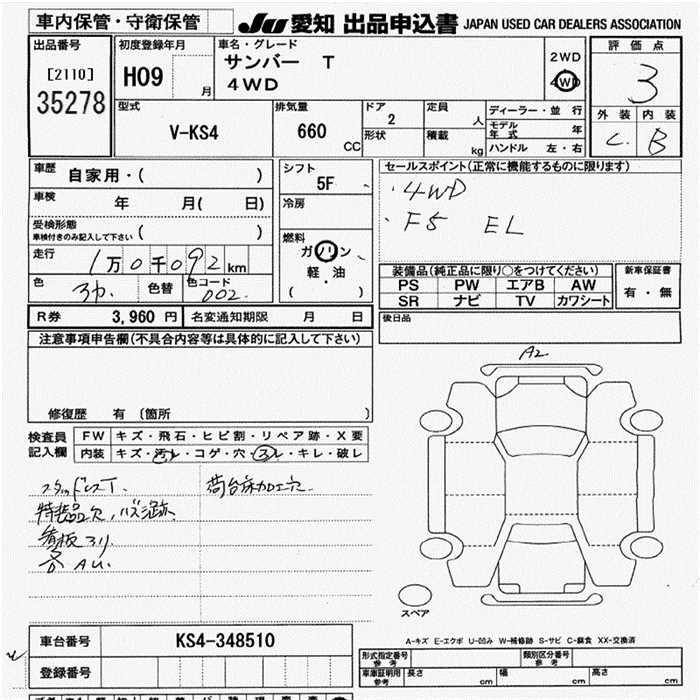 車内保管・守衛保管 JU 愛知 出品申込書 JAPAN USED CAR DEALERS ASSOCIATION
出品番号 初度登録年月 車名・グレード 評価点
[2110] H09 月 サンバー T 2WD 3
35278 4WD 4WD
外装 内装
型式 排気量 ドア 定員 ディーラー・並行 C. B
V-KS4 660 CC 2 人 モデル年式 年
形状 積載 kg ハンドル 左・右
車歴 自家用・( ) シフト 5F セールスポイント(正常に機能するものに限ります)
車検 年 月( 日) 冷房 ・4WD
受検形態 ・F5 EL
車検付きのみ記入して下さい ( ) 燃料
走行 1万0千092km ガソリン 装備品(純正品に限り○をつけてください) 新車保証書
軽・油 PS PW エアB AW 有・無
色 色替 色コード 002. ( ) SR ナビ TV カワシート
R券 3,960円 名変通知期限 月 日 後日品
注意事項申告欄(不具合内容等は具体的に記入して下さい)
A2
修復歴 有 (箇所 )
検査員 FW キズ・飛石・ヒビ割・リペア跡・X要
記入欄 内装 キズ・汚レ・コゲ・穴・スレ・キレ・破レ
スタッドレスT. 荷台床加工穴.
各AU.
スペア
車台番号 KS4-348510 A-キズ E-エクボ U-凹み W-補修跡 S-サビ C-腐食 XX-交換済
登録番号 形式指定番号 参考 類別区分番号 参考
車庫証明用 参考 長さ cm 幅 cm 高さ cm